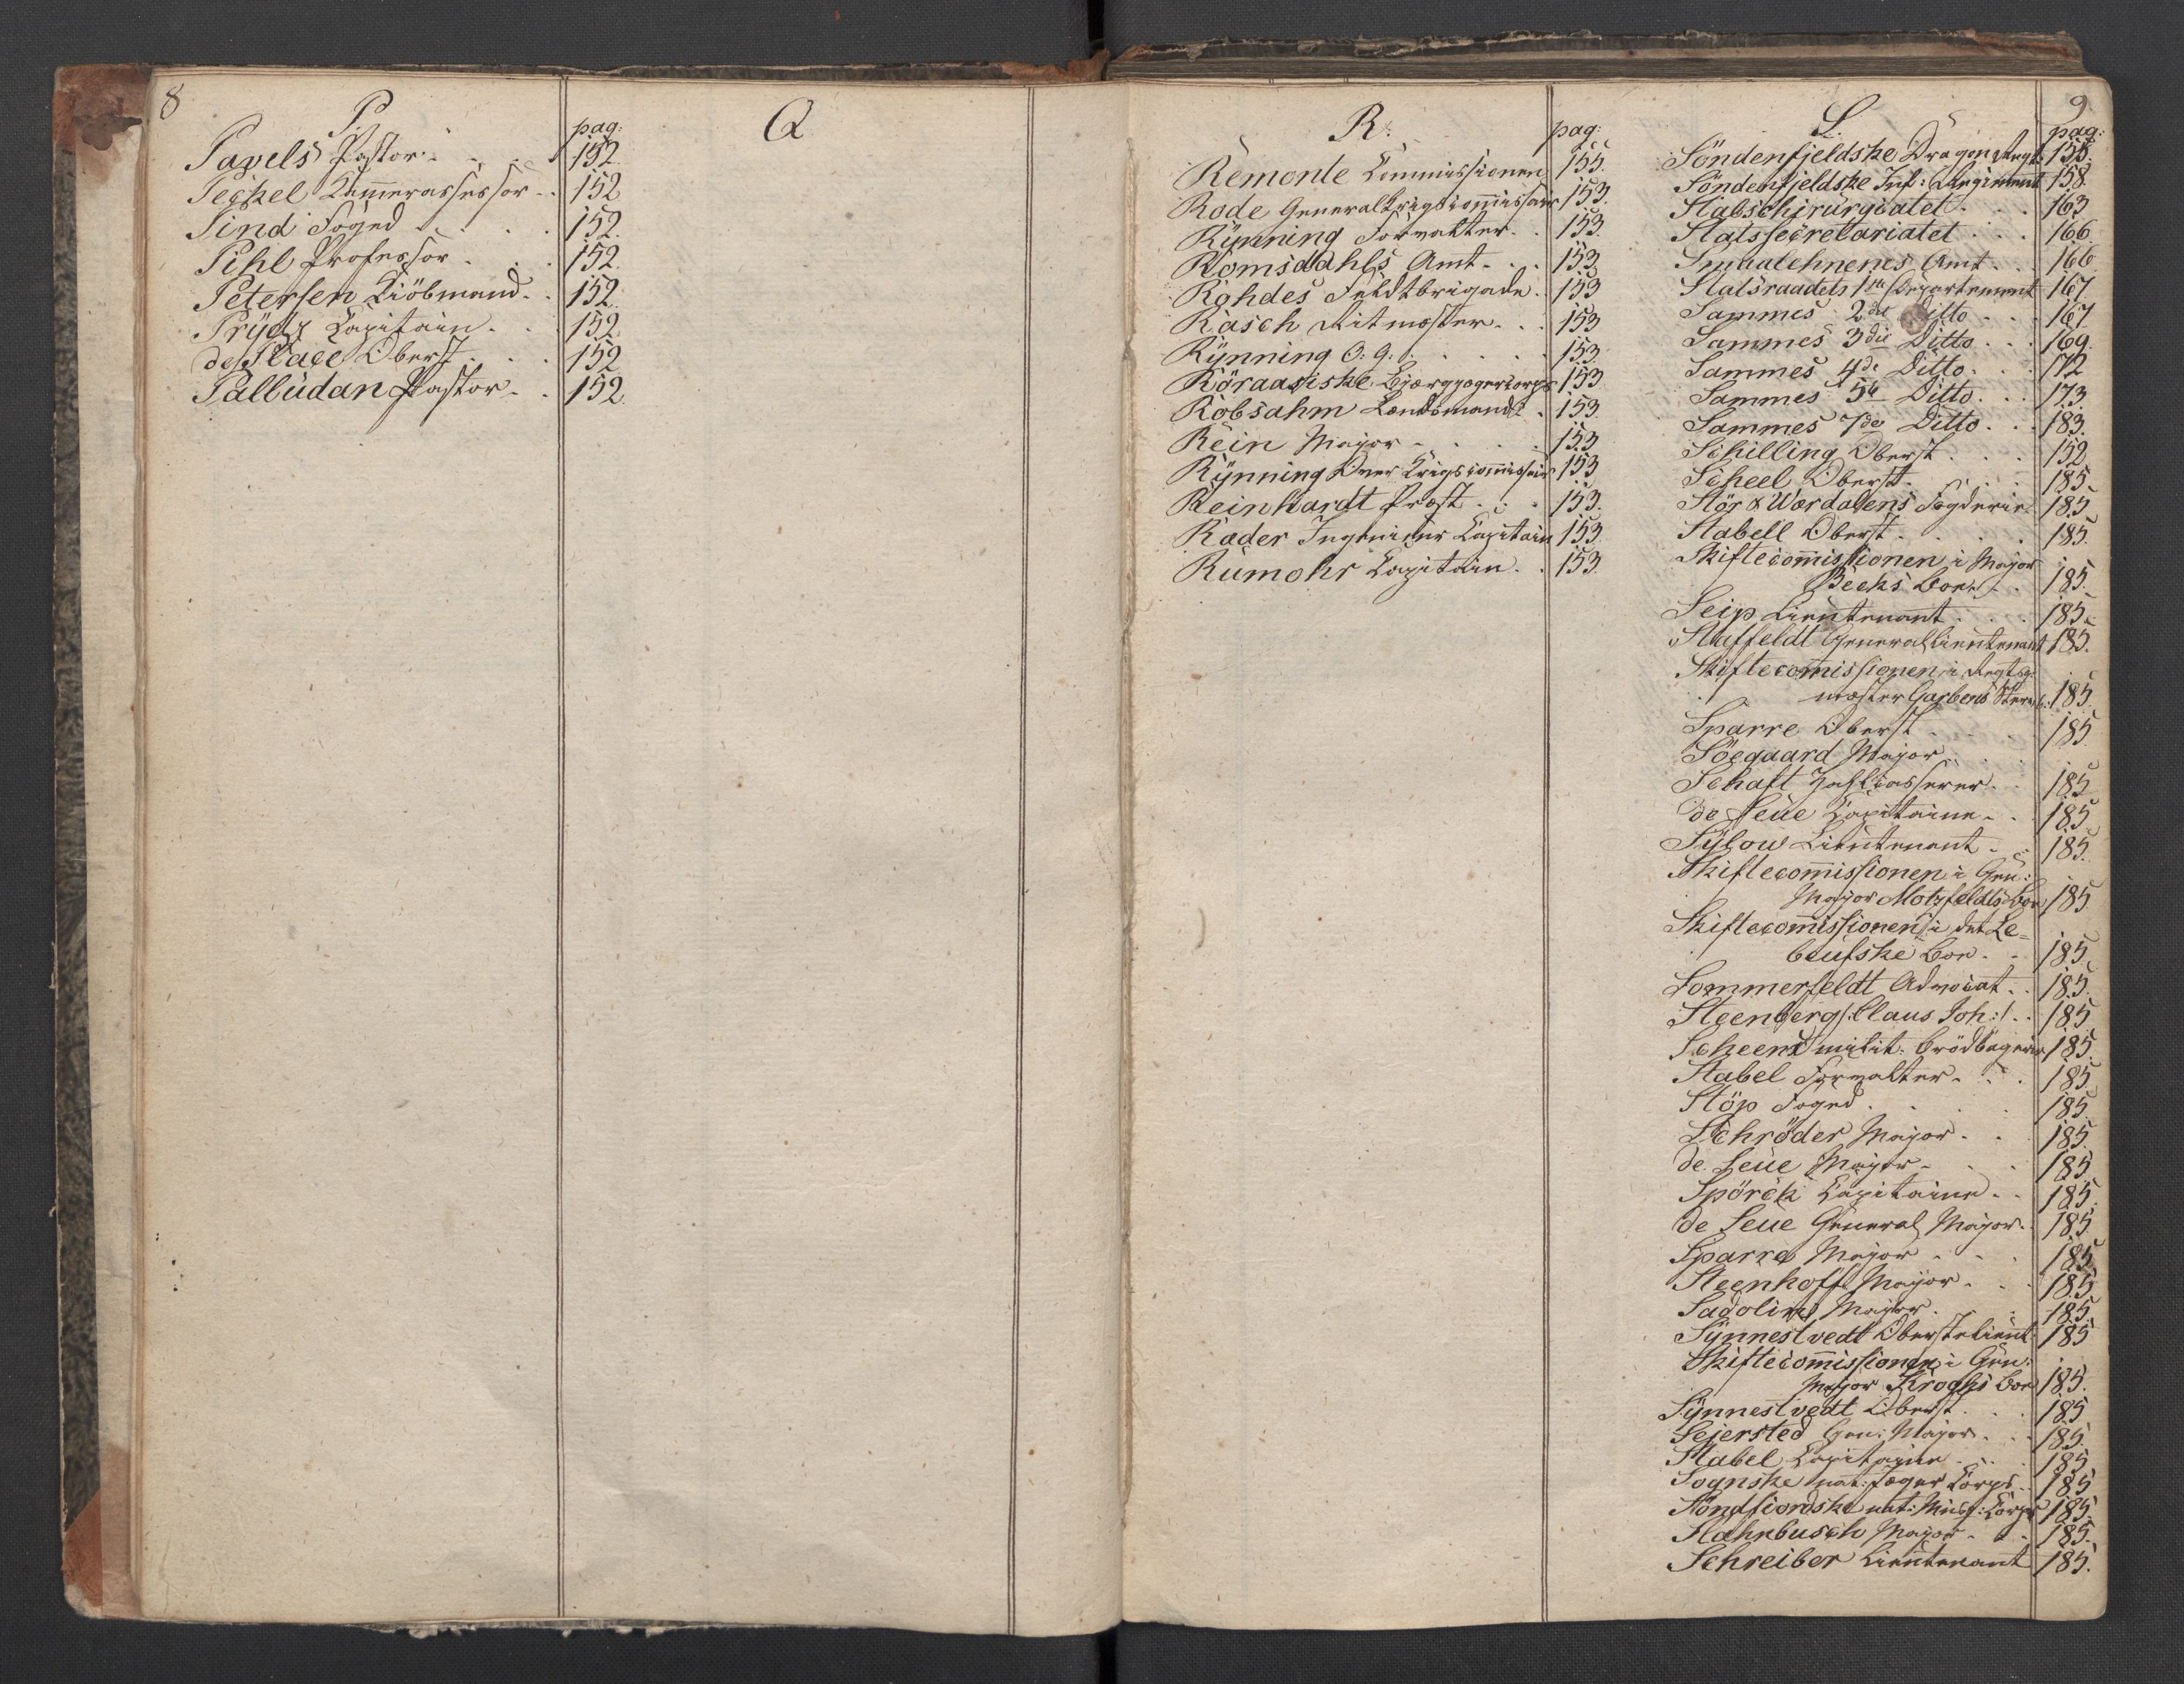 8
P.
pag:
Pavels Pastor . . . 152.
Peckel Kammerassessor . . 152
Pind Foged . . . . 152.
Pihl Professor . . . 152.
Petersen Kiöbmand . . 152.
Prydz Capitain . . . 152
de Place Oberst . . . 152
Palludan Pastor . . 152.
Q
R.
pag:
Remonte Commissionen 155.
Rode Generalkrigscommissair 153.
Rynning Forvalter . . 153.
Romsdahls Amt . . . 153
Rohdes Feldtbrigade . . 153
Rasch Ritmester . . . 153
Rynning O. G. . . . . . 153.
Röraasiske Bjærgjægercorps 153
Röbsahm Lændsmand . 153.
Rein Major . . . . . 153
Rynning Over Krigscommissair 153
Reinhardt Præst . . . 153.
Rader Ingenieur Capitain 153.
Rumohr Capitain . . 153.
9
S.
pag:
Söndenfjeldske Dragon Regt 155.
Söndenfjeldske Inf: Regiment 158.
Stabschirurgiatet . . . 163
Statssecretariatet . . . 166
Smaalehnenes Amt . . 166
Statsraadets 1ste Departement 167
Sammes 2det Ditto . . . 167
Sammes 3die Ditto . . . 169.
Sammes 4de Ditto . . . 172
Sammes 5te Ditto . . . 173
Sammes 7de Ditto . . . 183.
Schilling Oberst . . . 152
Scheel Oberst . . . . 185.
Stör & Værdalens Fogderie 185
Stabell Oberst . . . . 185.
Skiftecommissionen i Major
Beeks Boe . . 185.
Seip Lieutenant . . . 185.
Staffeldt Generallieutenant 185.
Skiftecommissionen i Regts
mester Garbens Sterv. 185.
Sparre Oberst . . . 185
Söegaard Major . . .
Schaft Zahlcasserer . . 185
de Seue Capitaine . . 185.
Sylow Lieutenant . . 185.
Skiftecommissionen i Gen:
Major Motzfeldts Boe 185
Skiftecommissionen i det Le=
beufske Boe . . 185.
Sommerfeldt Advocat . . 185.
Steenberg /: Claus Joh: / . . 185
Scheens milit: Brödbagerie 185.
Stabel Forvalter . . . 185
Stöp Foged . . . . 185
Schröder Major . . 185.
de Seue Major . . . 185
Spörck Capitaine . . 185.
de Seue General Major . 185
Sparre Major . . . 185
Steenhoff Major . . . 185.
Sadolin Major . . . 185.
Synnestvedt Oberstelieut: 185
Skiftecommissionen i Gen:
Major Kroghs Boe 185.
Synnestvedt Oberst . . . 185
Sejersted Gen: Major . . . 185.
Stabel Capitaine . . . 185
Sognske nat: Jæger Corps . 185
Söndfiordske nat: Musq: Corps 185.
Hahnbusch Major . . 185.
Schreiber Lieutenant 185.